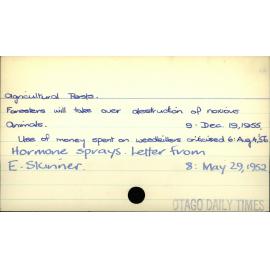 Agricultural Pests.
Foresters will take over destruction of noxious
Animals. 9: Dec. 19, 1955.
Use of money spent on weedkillers criticised 6: Aug 4, '56
Hormone sprays. Letter from
E. Skinner. 8: May 29, 1952
OTAGO DAILY TIMES